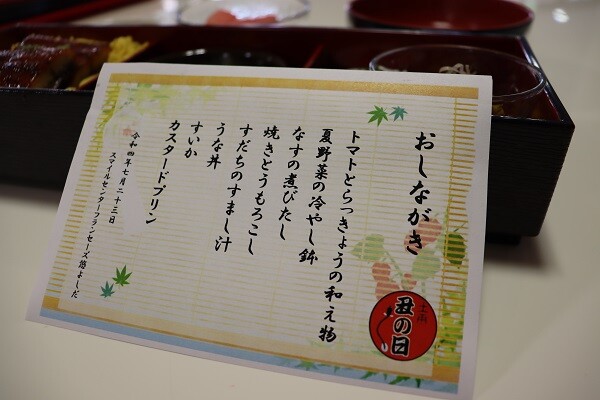 おしながき
トマトとらっきょうの和え物
夏野菜の冷やし鉢
なすの煮びたし
焼きとうもろこし
すだちのすまし汁
うな丼
すいか
カスタードプリン
令和四年七月二十三日
スマイルセンターフランセーズ悠よしだ
土用
丑の日